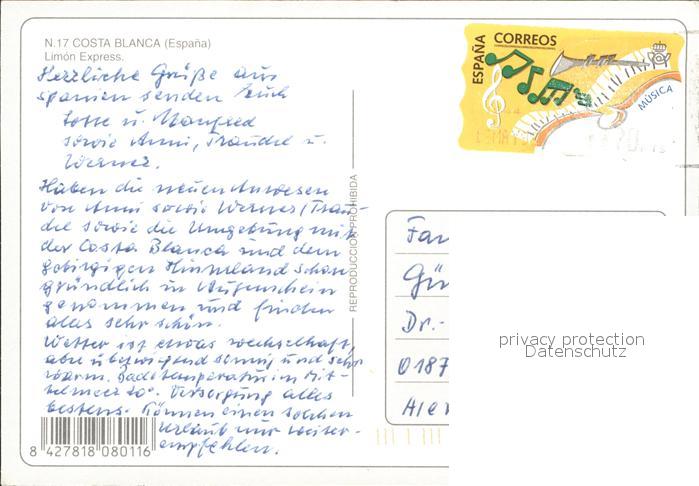 N.17 COSTA BLANCA (España)
Limón Express.
Herzliche Grüße aus
Spanien senden Euch
Lotte u. Manfred
sowie Anni, Traudel u.
Werner.
Haben die neuen Anwesen
von Anni sowie Werner/Trau-
del sowie die Umgebung mit
der Costa Blanca und dem
gebirgigen Hinterland schon
gründlich in Augenschein
genommen und finden
alles sehr schön.
Wetter ist etwas wechselhaft,
aber überwiegend sonnig und sehr
warm. Badetemperatur im Mit-
telmeer 20°. Versorgung alles
bestens. Können einen solchen
Urlaub nur weiter-
empfehlen.
8 427818 080116
REPRODUCCION PROHIBIDA
ESPAÑA
CORREOS
MÚSICA
Fam
Gü
Dr.-
0187
privacy protection
Datenschutz